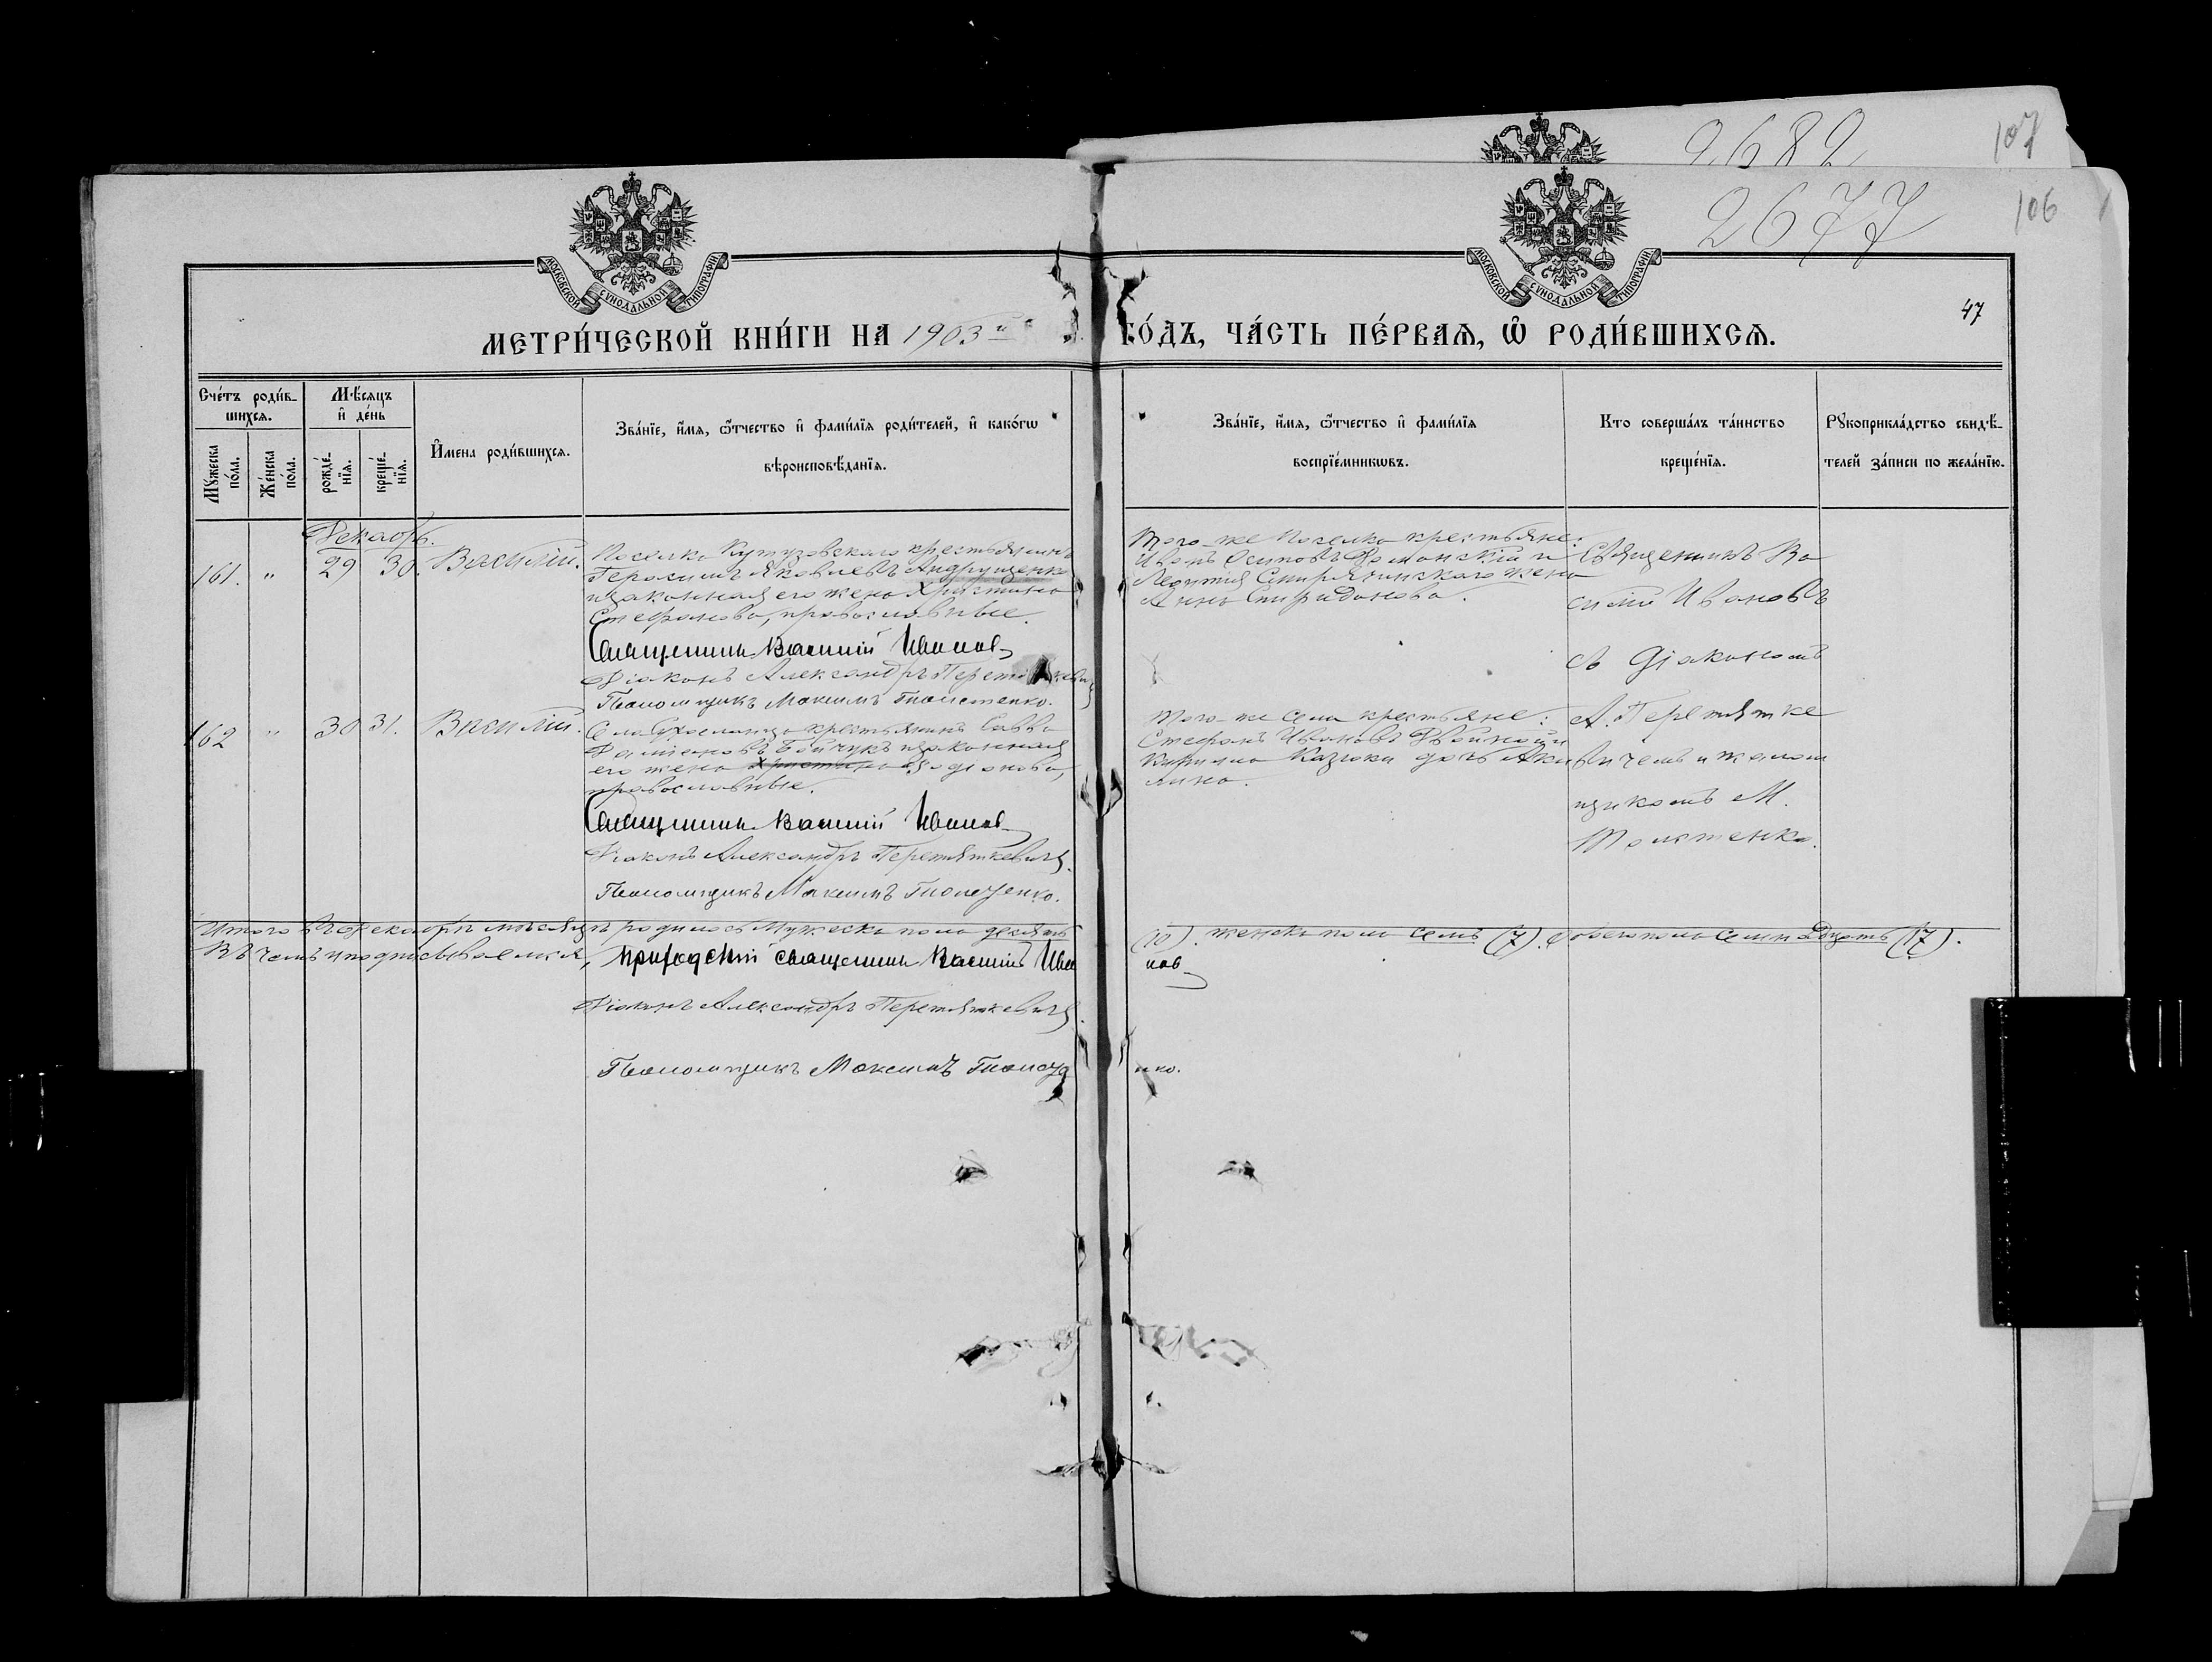 2682
107
2677
106
МОСКОВСКОЙ СѴНОДАЛЬНОЙ ТИПОГРАФІИ
МОСКОВСКОЙ СѴНОДАЛЬНОЙ ТИПОГРАФІИ
47
МЕТРИ́ЧЕСКОЙ КНИ́ГИ НА 1903й ГО́ДЪ, ЧА́СТЬ ПЕ́РВАЯ, Ѡ҆ РОДИ́ВШИХСЯ.
Сче́тъ роди́в-
шихся.
Мꙋ́жеска
по́ла.
Же́нска
по́ла.
Мѣ́сяцъ
и҆ де́нь
рожде́-
нїя.
креще́-
нїя.
И҆мена роди́вшихся.
Зва́нїе, и҆́мя, ѻ҆́тчество и҆ фами́лїя роди́телей, и҆ како́гѡ
вѣроисповѣ́данїя.
Зва́нїе, и҆́мя, ѻ҆́тчество и҆ фами́лїя
воспрїе́мникѡвъ.
Кто соверша́лъ та́инство
креще́нїя.
Рꙋкоприкла́дство свидѣ́-
телей за́писи по жела́нїю.
Декабрь.
161. " 29 30. Василій.
Поселка Кутузовскаго крестьянинъ
Герасимъ Яковлевъ Андрущенко
и законная его жена Христина
Стефанова, православные.
Священникъ Василій Иванов
Діаконъ Александръ
Псаломщикъ Максимъ
Того-же поселка крестьяне:
Иванъ Осиповъ Романскій и
Леонтія жена
Анна Спиридонова.
Священникъ Ва
силій Ивановъ
съ Діакономъ
А. Перетятке
вичемъ и псалом
щикомъ М.
162 " 30 31. Василій.
Села крестьянинъ Савва
Бойчукъ и законная
его жена Христина Родіонова,
православные.
Священникъ Василій Иванов
Діаконъ Александръ Перетяткевичъ.
Псаломщикъ Максимъ
Того-же села крестьяне:
Стефанъ Ивановъ и
дочь Аки
лина.
Итого въ Декабрѣ мѣсяцѣ родилось Мужеска пола десять (10). женска пола семь (7). обоего пола Семнадцать (17).
Въ чемъ и подписываемся, приходскій священникъ Василій Иванов
Діаконъ Александръ Перетяткевичъ.
Псаломщикъ Максимъ